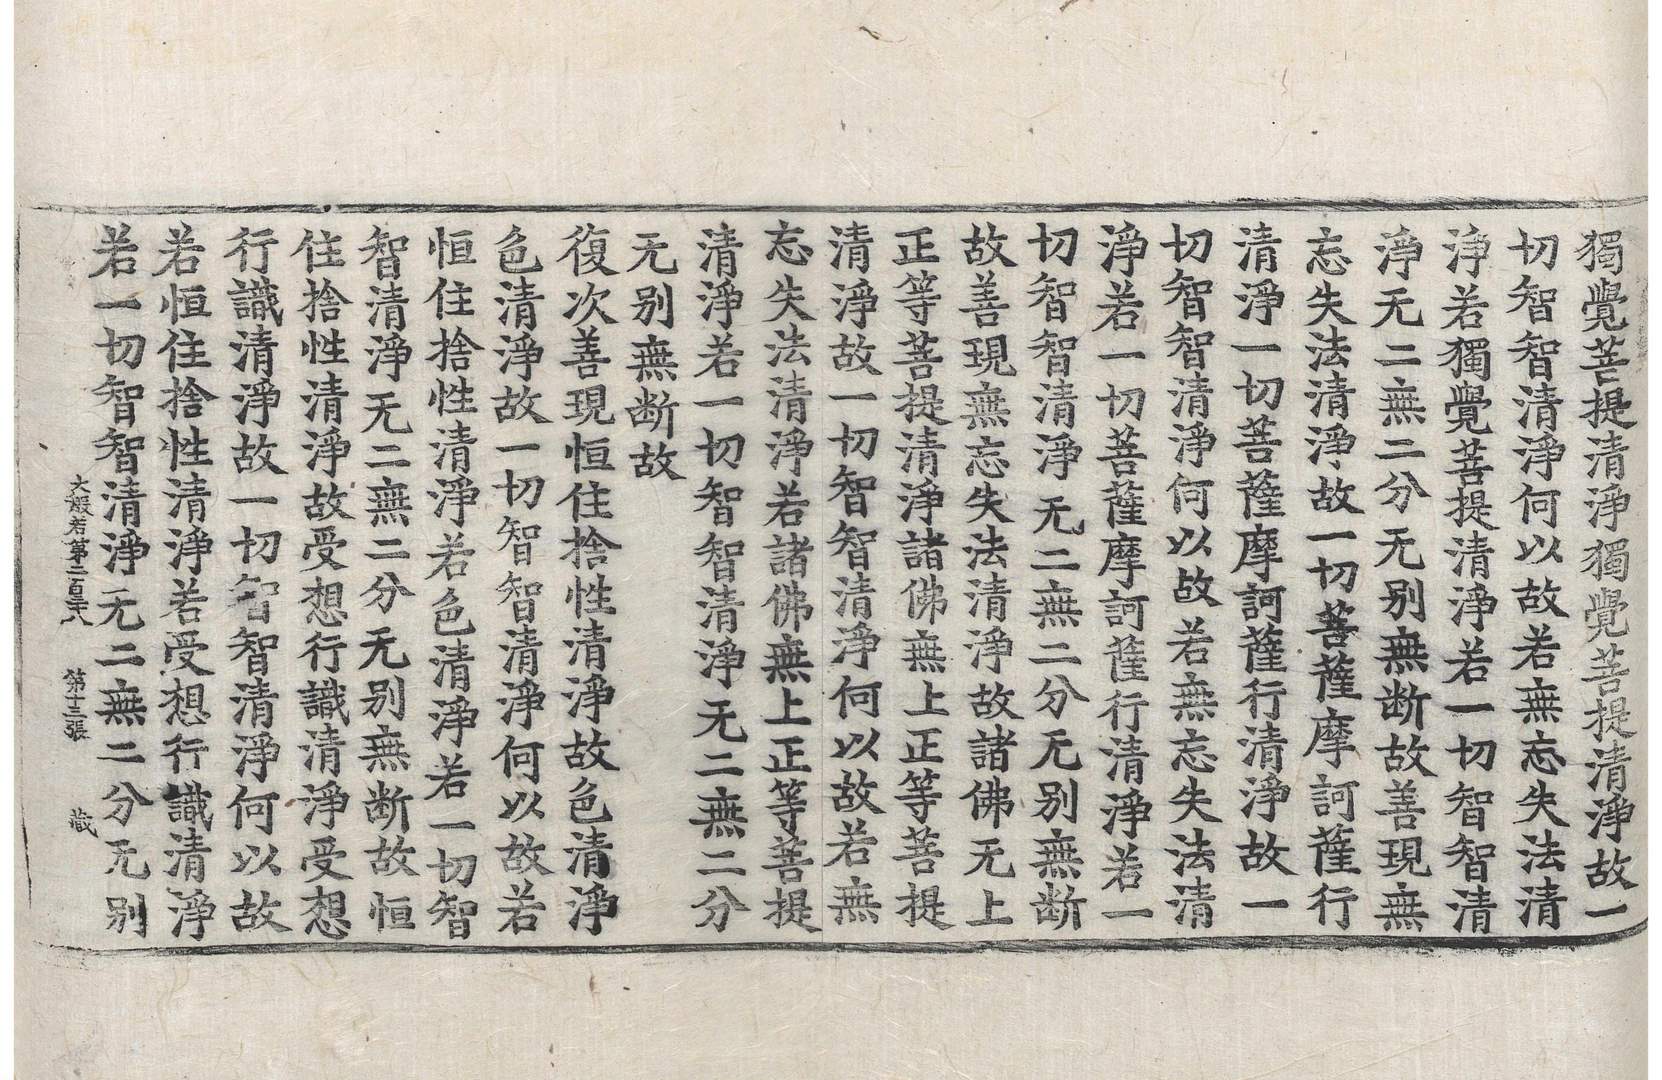 獨覺菩提清淨獨覺菩提清淨故一
切智智清淨何以故若無忘失法清
淨若獨覺菩提清淨若一切智智清
淨无二無二分无别無断故善現無
忘失法清淨故一切菩薩摩訶薩行
清淨一切菩薩摩訶薩行清淨故一
切智智清淨何以故若無忘失法清
淨若一切菩薩摩訶薩行清淨若一
切智智清淨无二無二分无别無断
故善現無忘失法清淨故諸佛无上
正等菩提清淨諸佛無上正等菩提
清淨故一切智智清淨何以故若無
忘失法清淨若諸佛無上正等菩提
清淨若一切智智清淨无二無二分
无别無断故
復次善現恒住捨性清淨故色清淨
色清淨故一切智智清淨何以故若
恒住捨性清淨若色清淨若一切智
智清淨无二無二分无别無断故恒
住捨性清淨故受想行識清淨受想
行識清淨故一切智智清淨何以故
若恒住捨性清淨若受想行識清淨
若一切智智清淨无二無二分无别
大般若第二百三十八 第十三張 藏